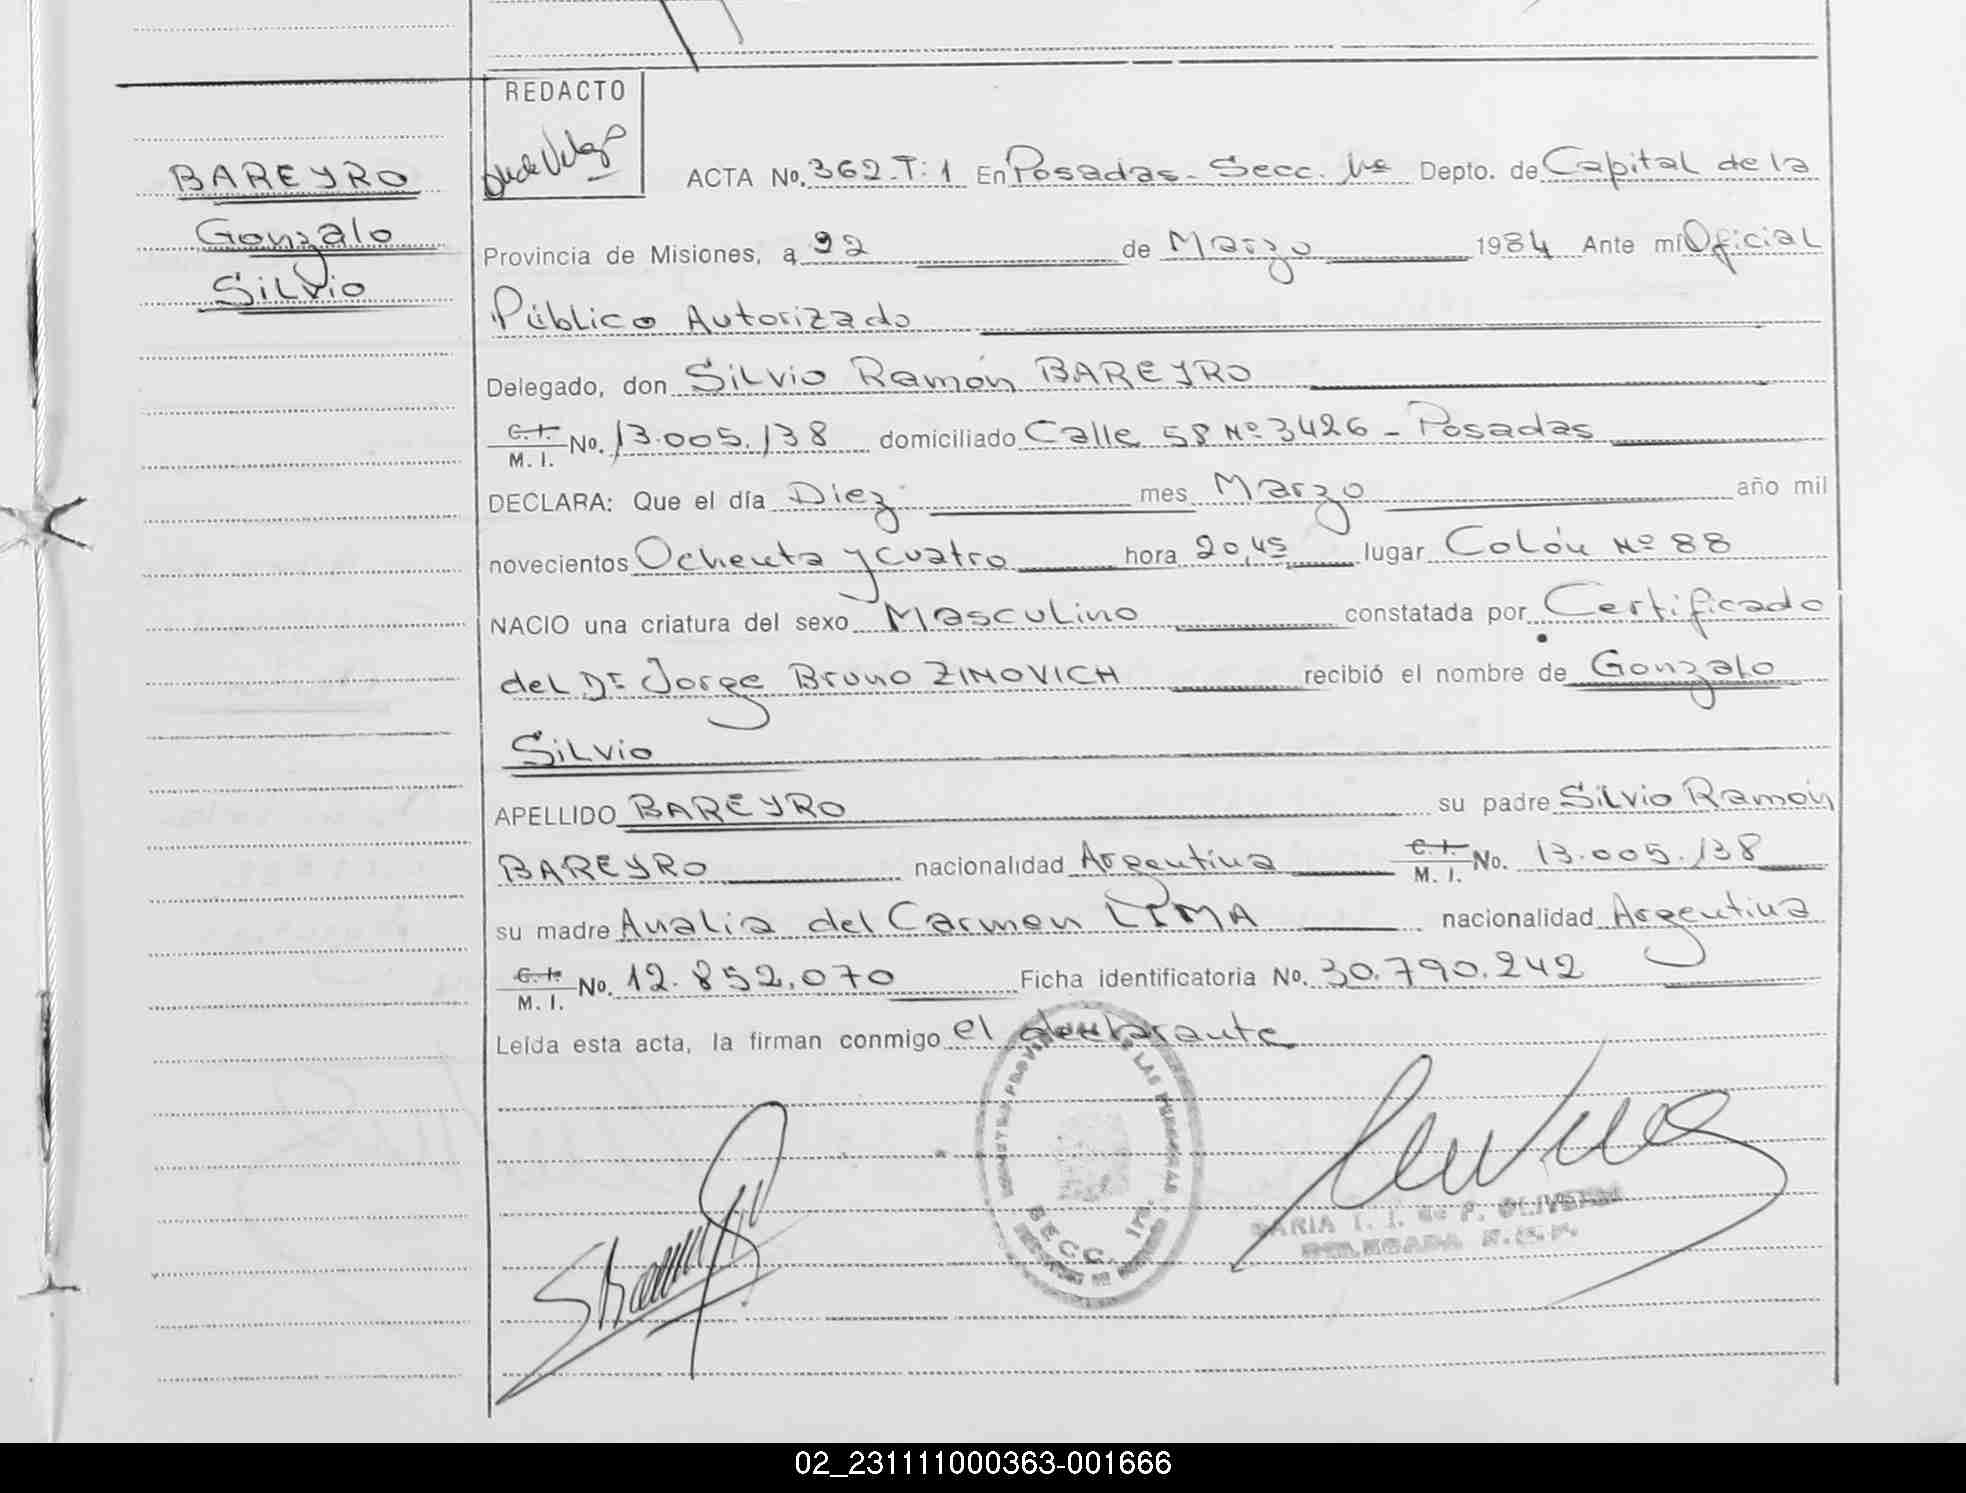 REDACTO
BAREYRO
Gonzalo
Silvio
ACTA No. 362-T:1 En Posadas- Secc. 1ra Depto. de Capital de la
Provincia de Misiones, a 22 de Marzo 1984 Ante mí Oficial
Público Autorizado
Delegado, don Silvio Ramón BAREYRO
C.I. M. I. No. 13.005.138 domiciliado Calle 58 Nº 3426 - Posadas
DECLARA: Que el día Diez mes Marzo año mil
novecientos Ochenta y cuatro hora 20,45 lugar Colón Nº 88
NACIO una criatura del sexo Masculino constatada por Certificado
del Dr Jorge Bruno ZINOVICH recibió el nombre de Gonzalo
Silvio
APELLIDO BAREYRO su padre Silvio Ramón
BAREYRO nacionalidad Argentina C.I. M. I. No. 13.005.138
su madre Analia del Carmen LIMA nacionalidad Argentina
C.I. M. I. No. 12.852.070 Ficha identificatoria No. 30.790.242
Leída esta acta, la firman conmigo el declarante
LAS PERSONAS
SECC. 1ra.
MARIA I. I. de P. OLIVEIRA
DELEGADA
02_231111000363-001666